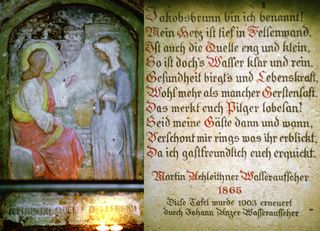 Jakobsbrunn bin ich benannt!
Mein Herz ist tief in Felsenwand.
Ist auch die Quelle eng und klein,
So ist doch's Wasser klar und rein.
Gesundheit birgt's und Lebenskraft,
Wohl mehr als mancher Gerstensaft.
Das merkt euch Pilger lobesan!
Seid meine Gäste dann und wann,
Verschont mir rings was ihr erblickt,
Da ich gastfreundlich euch erquickt.
Martin Achleithner Wasseraufseher
1865
Diese Tafel wurde 1903 erneuert
durch Johann Wasseraufseher
ICH BIN DIE QUELLE DES LEBENS